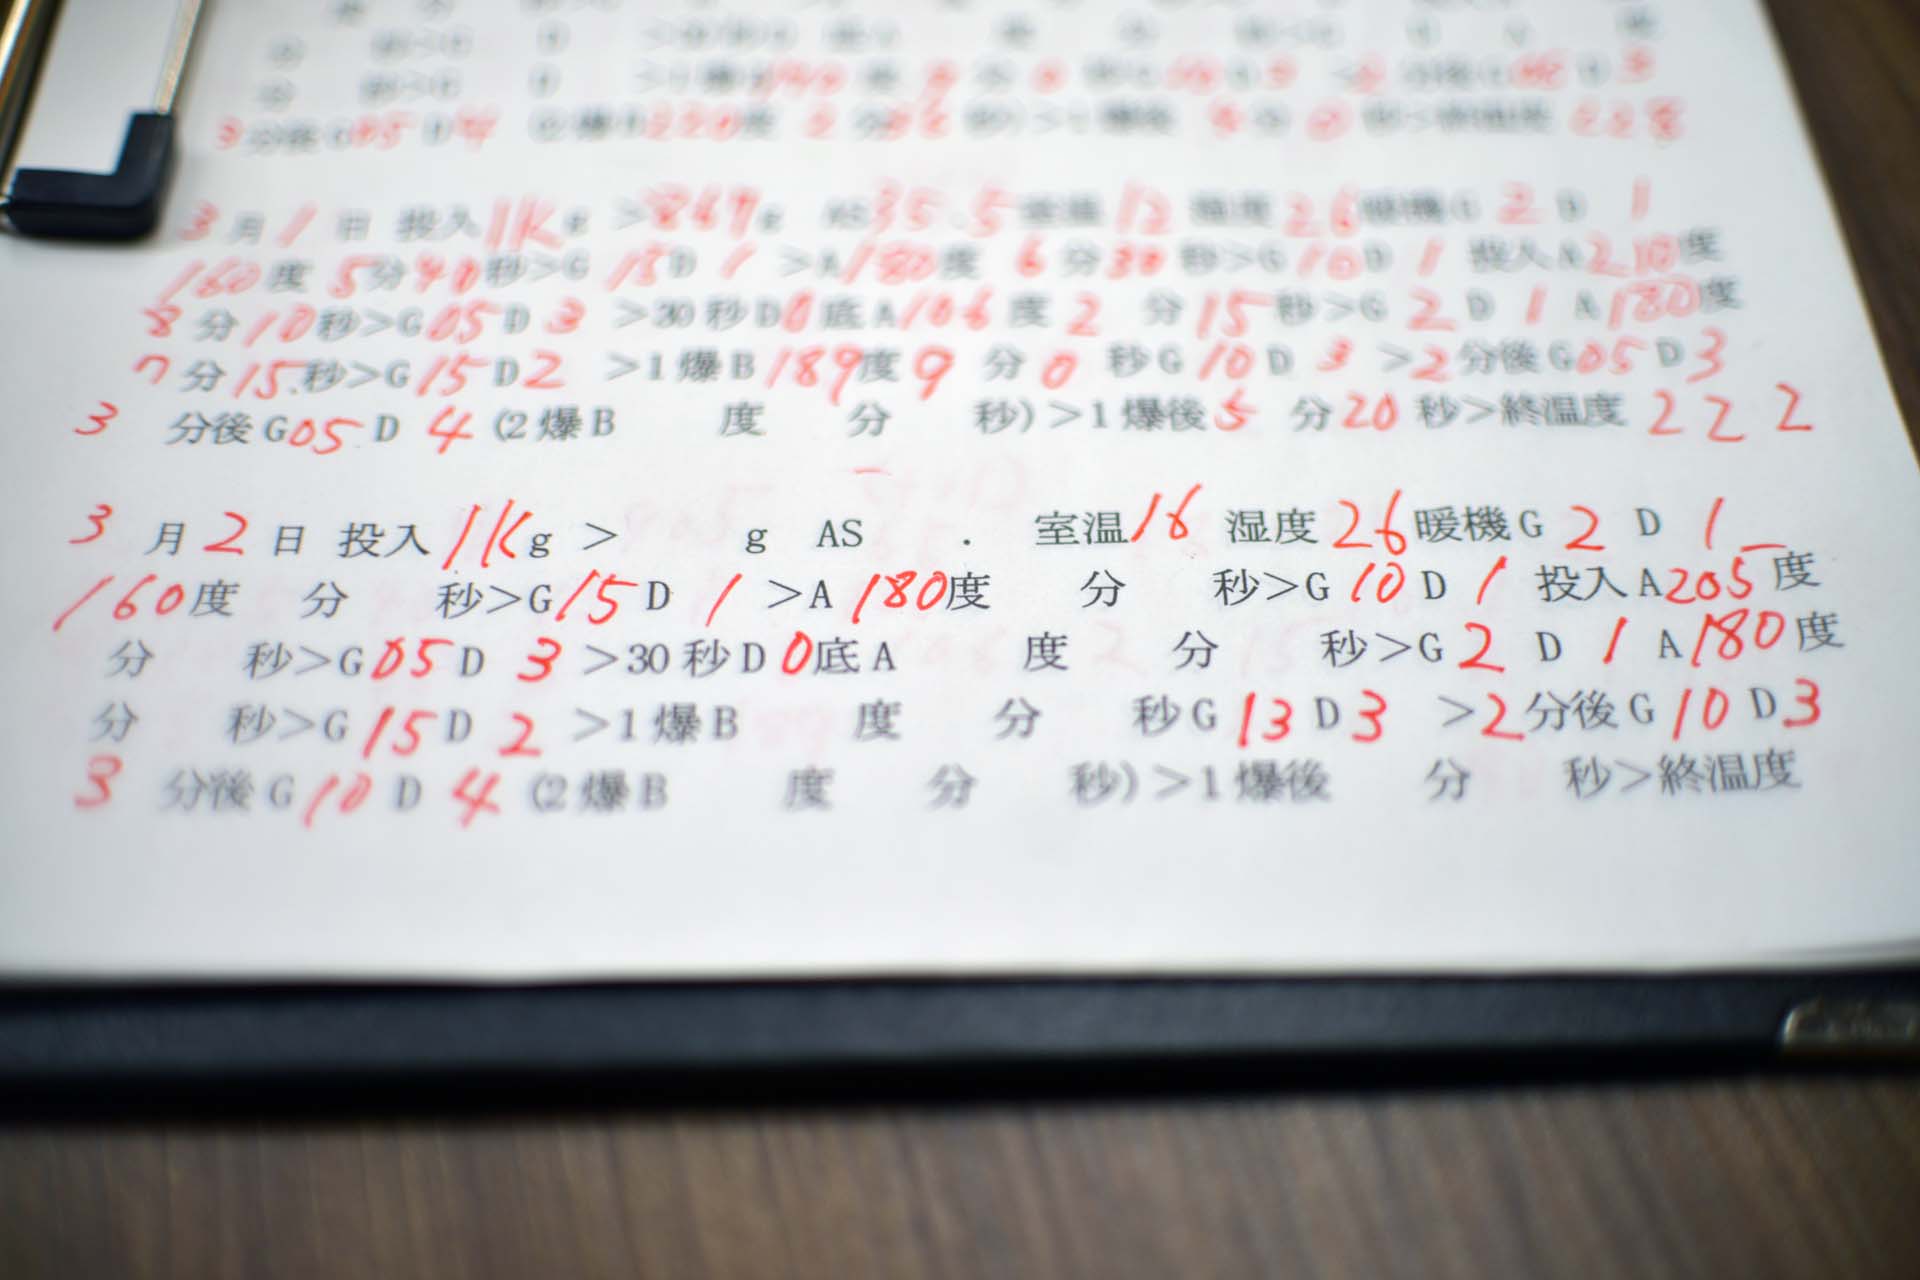 3分後G05 D4 (2爆B220度 2分 秒)>1爆後 分0秒>終温度228
3月1日 投入1Kg >869g AS35.5 室温12 湿度26暖機G2 D 1
160度5分40秒>G15D 1 >A180度 6分30秒>G10D 1 投入A210度
8分10秒>G05D3 >30秒D0底A106度2分15秒>G2 D 1 A180度
7分15秒>G15D2 >1爆B189度9分0秒G10D3 >2分後G05D3
3分後G05D4(2爆B 度 分 秒)>1爆後5分20秒>終温度222
3月2日 投入1Kg > g AS . 室温16 湿度26暖機G2 D 1
160度 分 秒>G15D 1 >A180度 分 秒>G10D 1 投入A205度
分 秒>G05D 3 >30秒D0底A 度 分 秒>G2 D 1 A180度
分 秒>G15D 2 >1爆B 度 分 秒G13D3 >2分後G10D3
3分後G10D 4 (2爆B 度 分 秒)>1爆後 分 秒>終温度